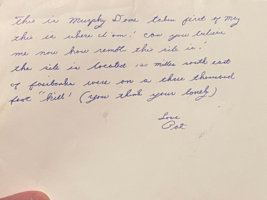 This is Murphy Dome taken first of May
this is where I am! Can you believe
me now how remote this site is!
the site is located 20 miles south east
of fairbanks were on a three thousand
foot "hill" (you think your lonely)
Love
Pat